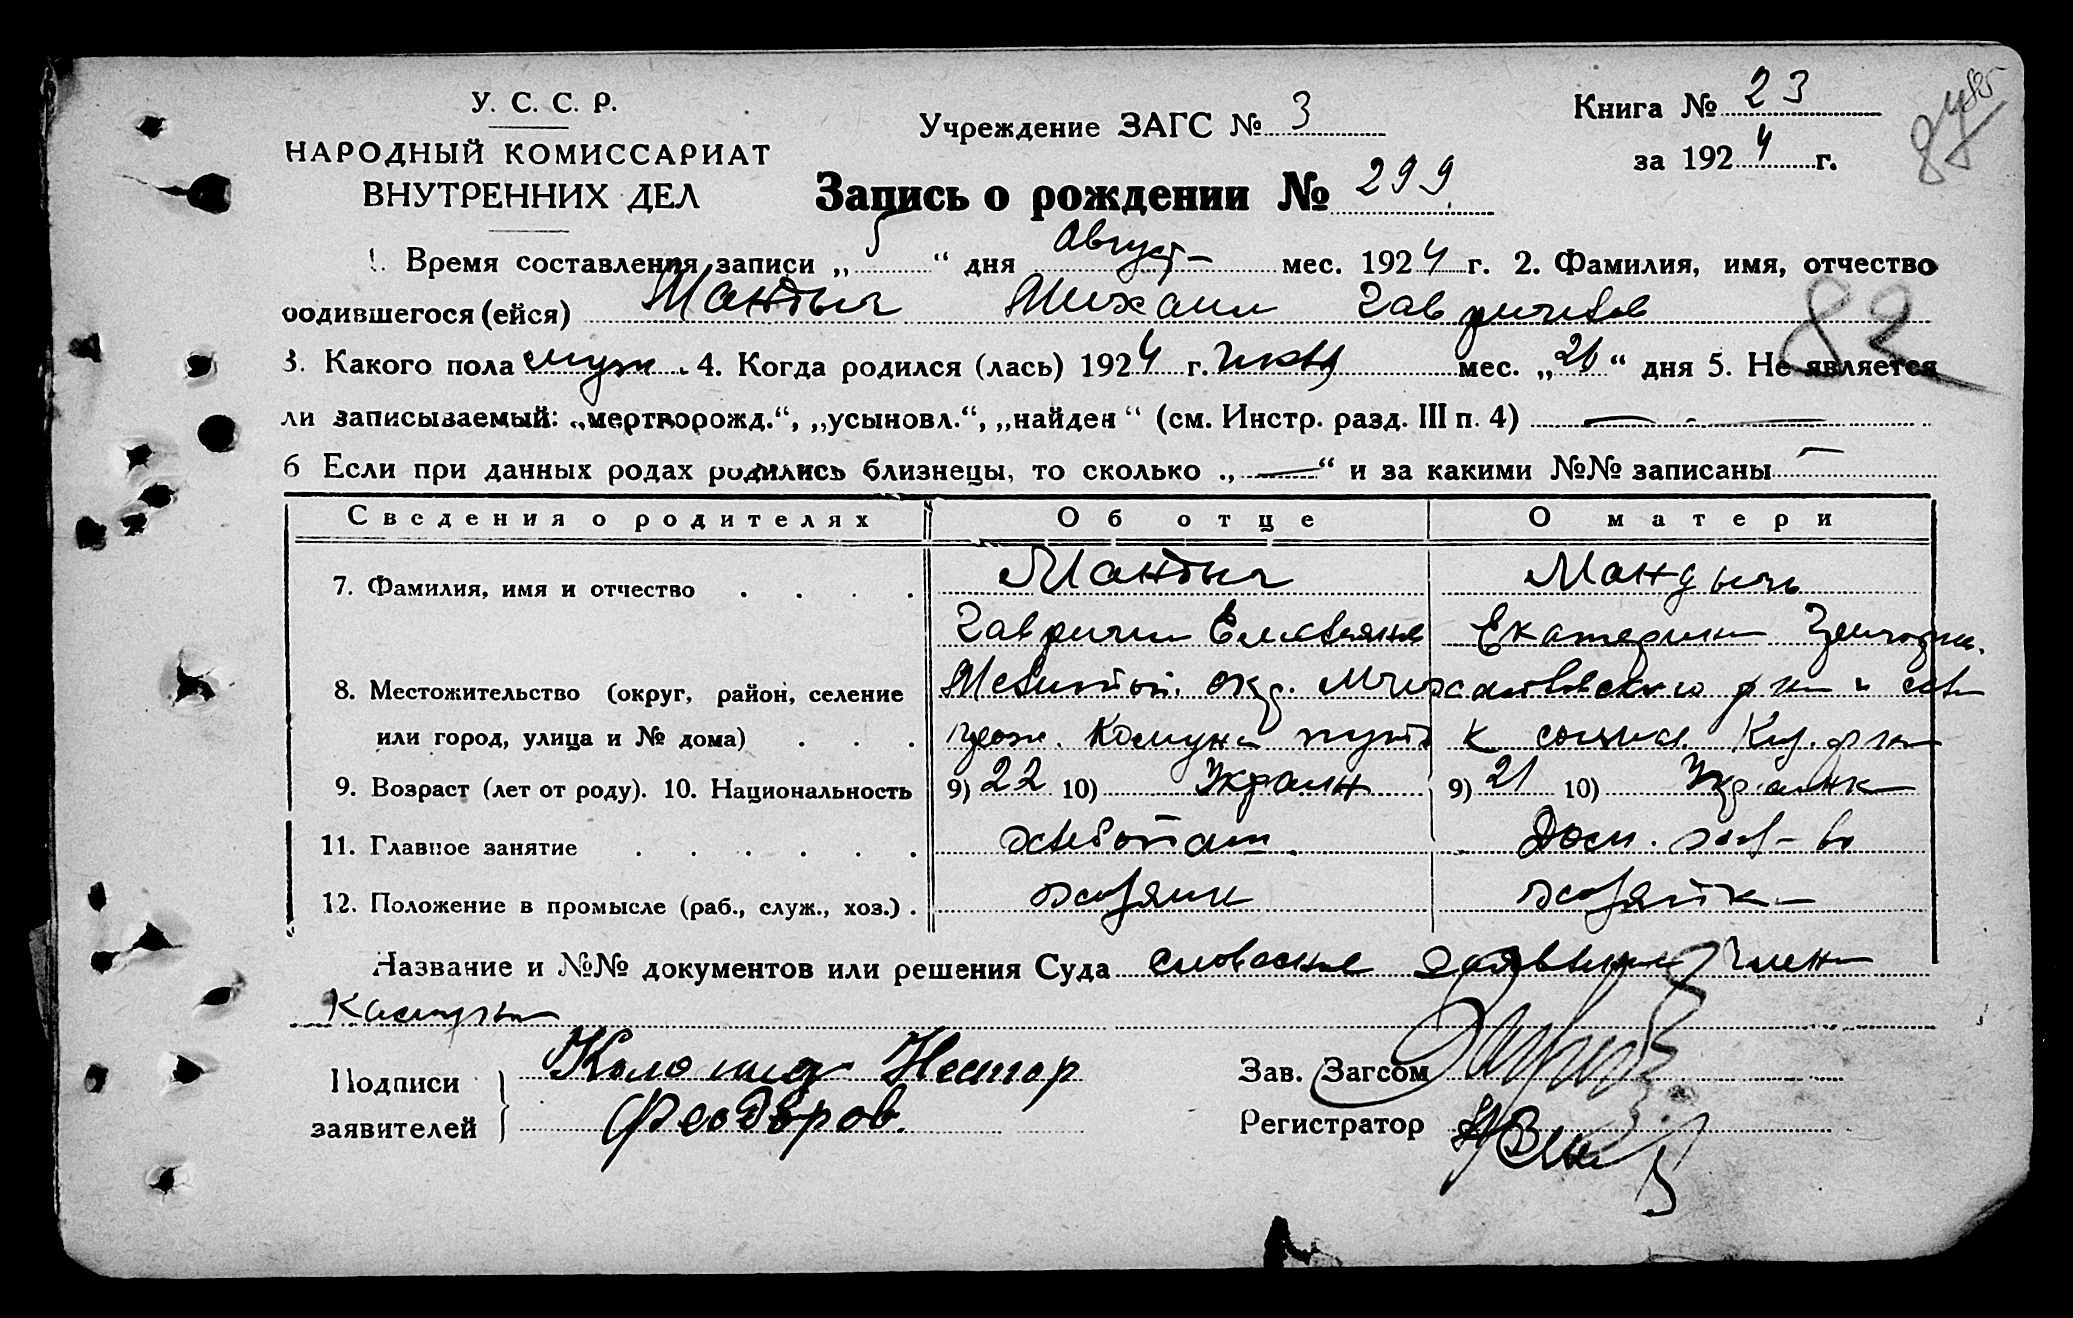 У. С. С. Р.
НАРОДНЫЙ КОМИССАРИАТ
ВНУТРЕННИХ ДЕЛ
Учреждение ЗАГС № 3
Книга № 23
за 1924 г.
82
Запись о рождении № 299
1. Время составления записи „5“ дня Август мес. 1924 г. 2. Фамилия, имя, отчество
родившегося (ейся) Мандыч Михаил Гаврилов
3. Какого пола муж. 4. Когда родился (лась) 1924 г. июня мес. „26“ дня 5. Не является
ли записываемый: „мертворожд.“, „усыновл.“, „найден“ (см. Инстр. разд. III п. 4) —
6 Если при данных родах родились близнецы, то сколько „—“ и за какими №№ записаны —
Сведения о родителях Об отце О матери
7. Фамилия, имя и отчество Мандыч Мандычь
Гаврилл Емельянов Екатерина
8. Местожительство (округ, район, селение окр. Михайловского р на и
или город, улица и № дома) Комуна путь к социал.
9. Возраст (лет от роду). 10. Национальность 9) 22 10) Украин 9) 21 10) Украинка
11. Главное занятие хлебопаш. Дом. хоз-во
12. Положение в промысле (раб., служ., хоз.) хозяин хозяйка
Название и №№ документов или решения Суда словесное заявление члена
Подписи
заявителей
Нестор
Феодоров.
Зав. Загсом
Регистратор